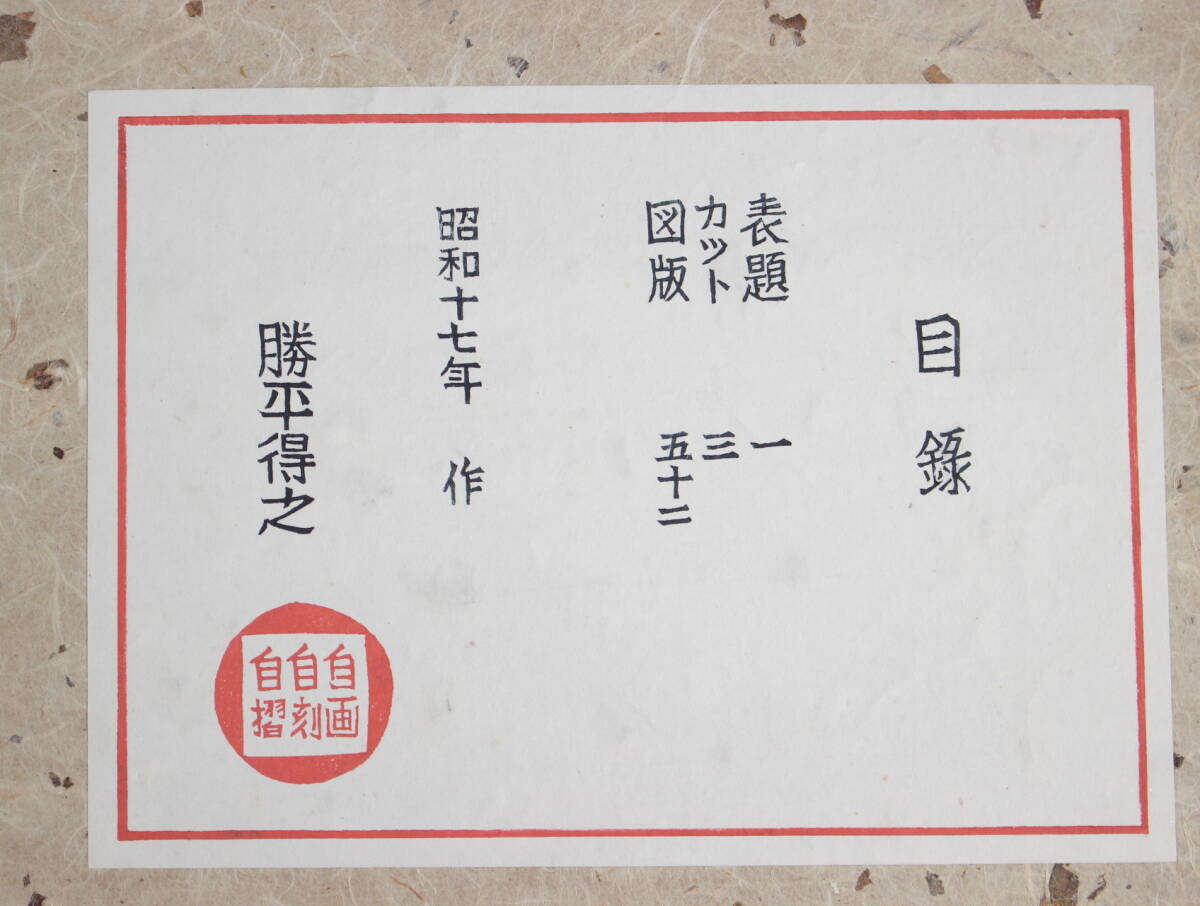 目錄
表題 一
カット 三
図版 五十二
昭和十七年 作
勝平得之
自画
自刻
自摺